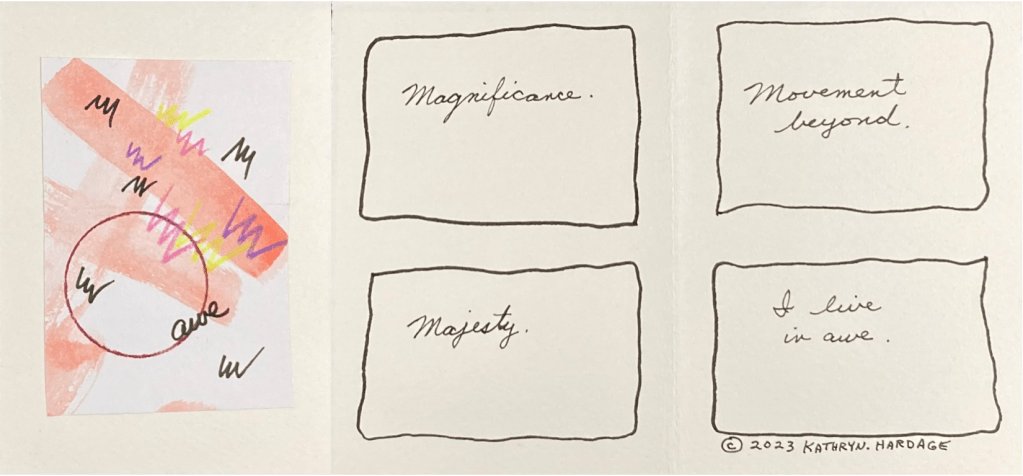 awe
Magnificance.
Movement
beyond.
Majesty.
I live
in awe.
© 2023 KATHRYN. HARDAGE